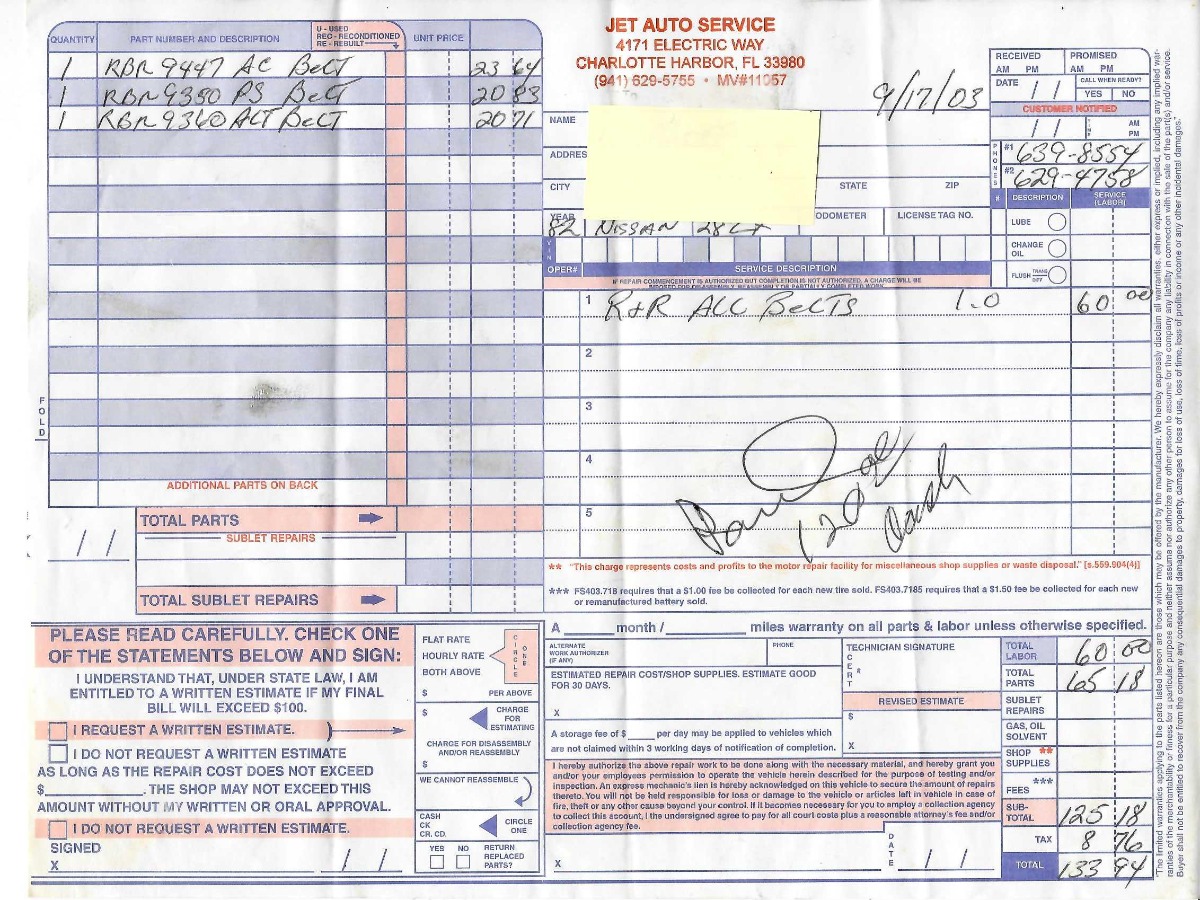 JET AUTO SERVICE
4171 ELECTRIC WAY
CHARLOTTE HARBOR, FL 33980
(941) 629-5755 • MV#11057
9/17/03
QUANTITY PART NUMBER AND DESCRIPTION U - USED REC - RECONDITIONED RE - REBUILT UNIT PRICE
1 RBR 9447 AC BELT 23 64
1 RBR 9350 PS BELT 20 83
1 RBR 9360 ALT BELT 20 71
ADDITIONAL PARTS ON BACK
TOTAL PARTS
SUBLET REPAIRS
/ /
TOTAL SUBLET REPAIRS
FOLD
NAME
ADDRES
CITY STATE ZIP
YEAR ODOMETER LICENSE TAG NO.
82 NISSAN 28
VIN
RECEIVED PROMISED
AM PM AM PM
DATE / / CALL WHEN READY?
YES NO
CUSTOMER NOTIFIED
/ / TIME AM PM
PHONES
#1 639-8554
#2 629-4758
# DESCRIPTION SERVICE (LABOR)
LUBE
CHANGE OIL
FLUSH TRANS DIFF
OPER# SERVICE DESCRIPTION
IF REPAIR COMMENCEMENT IS AUTHORIZED BUT COMPLETION IS NOT AUTHORIZED, A CHARGE WILL BE
IMPOSED FOR DISASSEMBLY, REASSEMBLY OR PARTIALLY COMPLETED WORK.
1 R+R ALL BELTS 1.0 60 00
2
3
4
5
120
Cash
** "This charge represents costs and profits to the motor repair facility for miscellaneous shop supplies or waste disposal." [s.559.904(4)]
*** FS403.718 requires that a $1.00 fee be collected for each new tire sold. FS403.7185 requires that a $1.50 fee be collected for each new
or remanufactured battery sold.
PLEASE READ CAREFULLY. CHECK ONE
OF THE STATEMENTS BELOW AND SIGN:
I UNDERSTAND THAT, UNDER STATE LAW, I AM
ENTITLED TO A WRITTEN ESTIMATE IF MY FINAL
BILL WILL EXCEED $100.
I REQUEST A WRITTEN ESTIMATE.
I DO NOT REQUEST A WRITTEN ESTIMATE
AS LONG AS THE REPAIR COST DOES NOT EXCEED
$__________. THE SHOP MAY NOT EXCEED THIS
AMOUNT WITHOUT MY WRITTEN OR ORAL APPROVAL.
I DO NOT REQUEST A WRITTEN ESTIMATE.
SIGNED
X / /
FLAT RATE
HOURLY RATE
BOTH ABOVE
CIRCLE ONE
$ PER ABOVE
$ CHARGE FOR ESTIMATING
CHARGE FOR DISASSEMBLY
AND/OR REASSEMBLY
$
WE CANNOT REASSEMBLE
CASH
CK
CR. CD.
CIRCLE ONE
YES NO RETURN REPLACED PARTS?
A ______ month / __________ miles warranty on all parts & labor unless otherwise specified.
ALTERNATE WORK AUTHORIZER (IF ANY) PHONE
ESTIMATED REPAIR COST/SHOP SUPPLIES. ESTIMATE GOOD
FOR 30 DAYS.
X
A storage fee of $_____ per day may be applied to vehicles which
are not claimed within 3 working days of notification of completion.
TECHNICIAN SIGNATURE
CERT #
REVISED ESTIMATE
$
X
I hereby authorize the above repair work to be done along with the necessary material, and hereby grant you
and/or your employees permission to operate the vehicle herein described for the purpose of testing and/or
inspection. An express mechanic's lien is hereby acknowledged on this vehicle to secure the amount of repairs
thereto. You will not be held responsible for loss or damage to the vehicle or articles left in vehicle in case of
fire, theft or any other cause beyond your control. If it becomes necessary for you to employ a collection agency
to collect this account, I the undersigned agree to pay for all court costs plus a reasonable attorney's fee and/or
collection agency fee.
X
DATE / /
TOTAL LABOR 60 00
TOTAL PARTS 65 18
SUBLET REPAIRS
GAS, OIL SOLVENT
SHOP ** SUPPLIES
*** FEES
SUB-TOTAL 125 18
TAX 8 76
TOTAL 133 94
"The limited warranties applying to the parts listed hereon are those which may be offered by the manufacturer. We hereby expressly disclaim all warranties, either express or implied, including any implied war-
ranties of the merchantability or fitness for a particular purpose and neither assume nor authorize any other person to assume for the company any liability in connection with the sale of the part(s) and/or service.
Buyer shall not be entitled to recover from the company any consequential damages to property, damages for loss of use, loss of time, loss of profits or income or any other incidental damages."